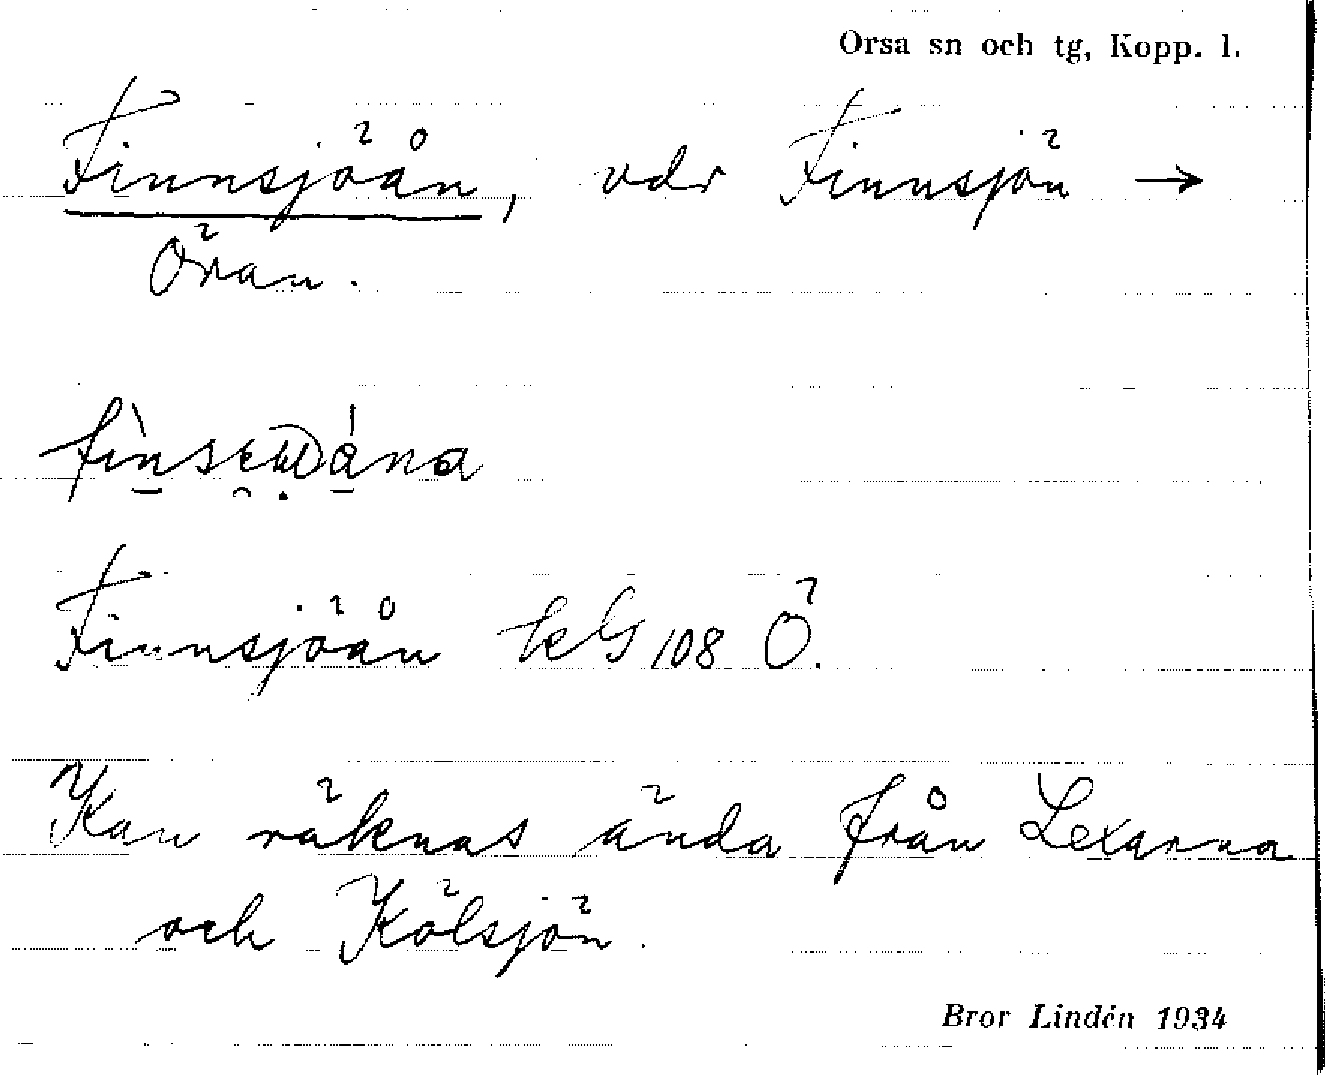 Orsa sn och tg, Kopp. l.
Finnsjöån, vdr Finnsjön →
Öran.
Finnsjöån kG 108 Ö.
Kan räknas ända från Lexarna
och Kölsjön.
Bror Lindén 1934